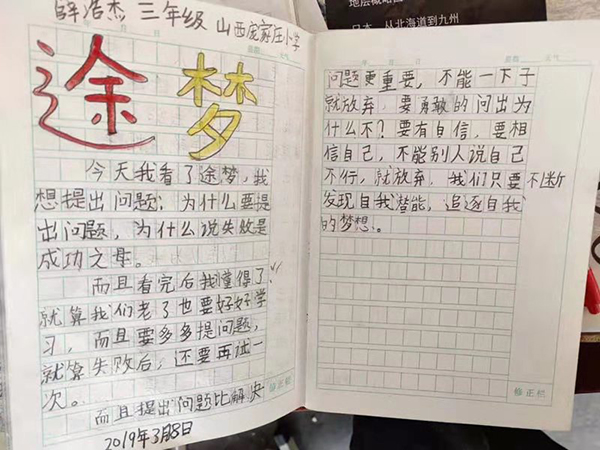 薛浩杰 三年级 山西庞家庄小学
途梦
今天我看了途梦，我
想提出问题：为什么要提
出问题，为什么说失败是
成功之母。
而且看完后我懂得了
就算我们老了也要好好学
习，而且要多多提问题，
就算失败后，还要再试一
次。
而且提出问题比解决
2019年3月8日
修正栏
地层概略图
日本 从北海道到九州
问题更重要，不能一下子
就放弃，要勇敢的问出为
什么不？要有自信，要相
信自己，不能别人说自己
不行，就放弃，我们只要不断
发现自我潜能，追逐自我
的梦想。
修正栏